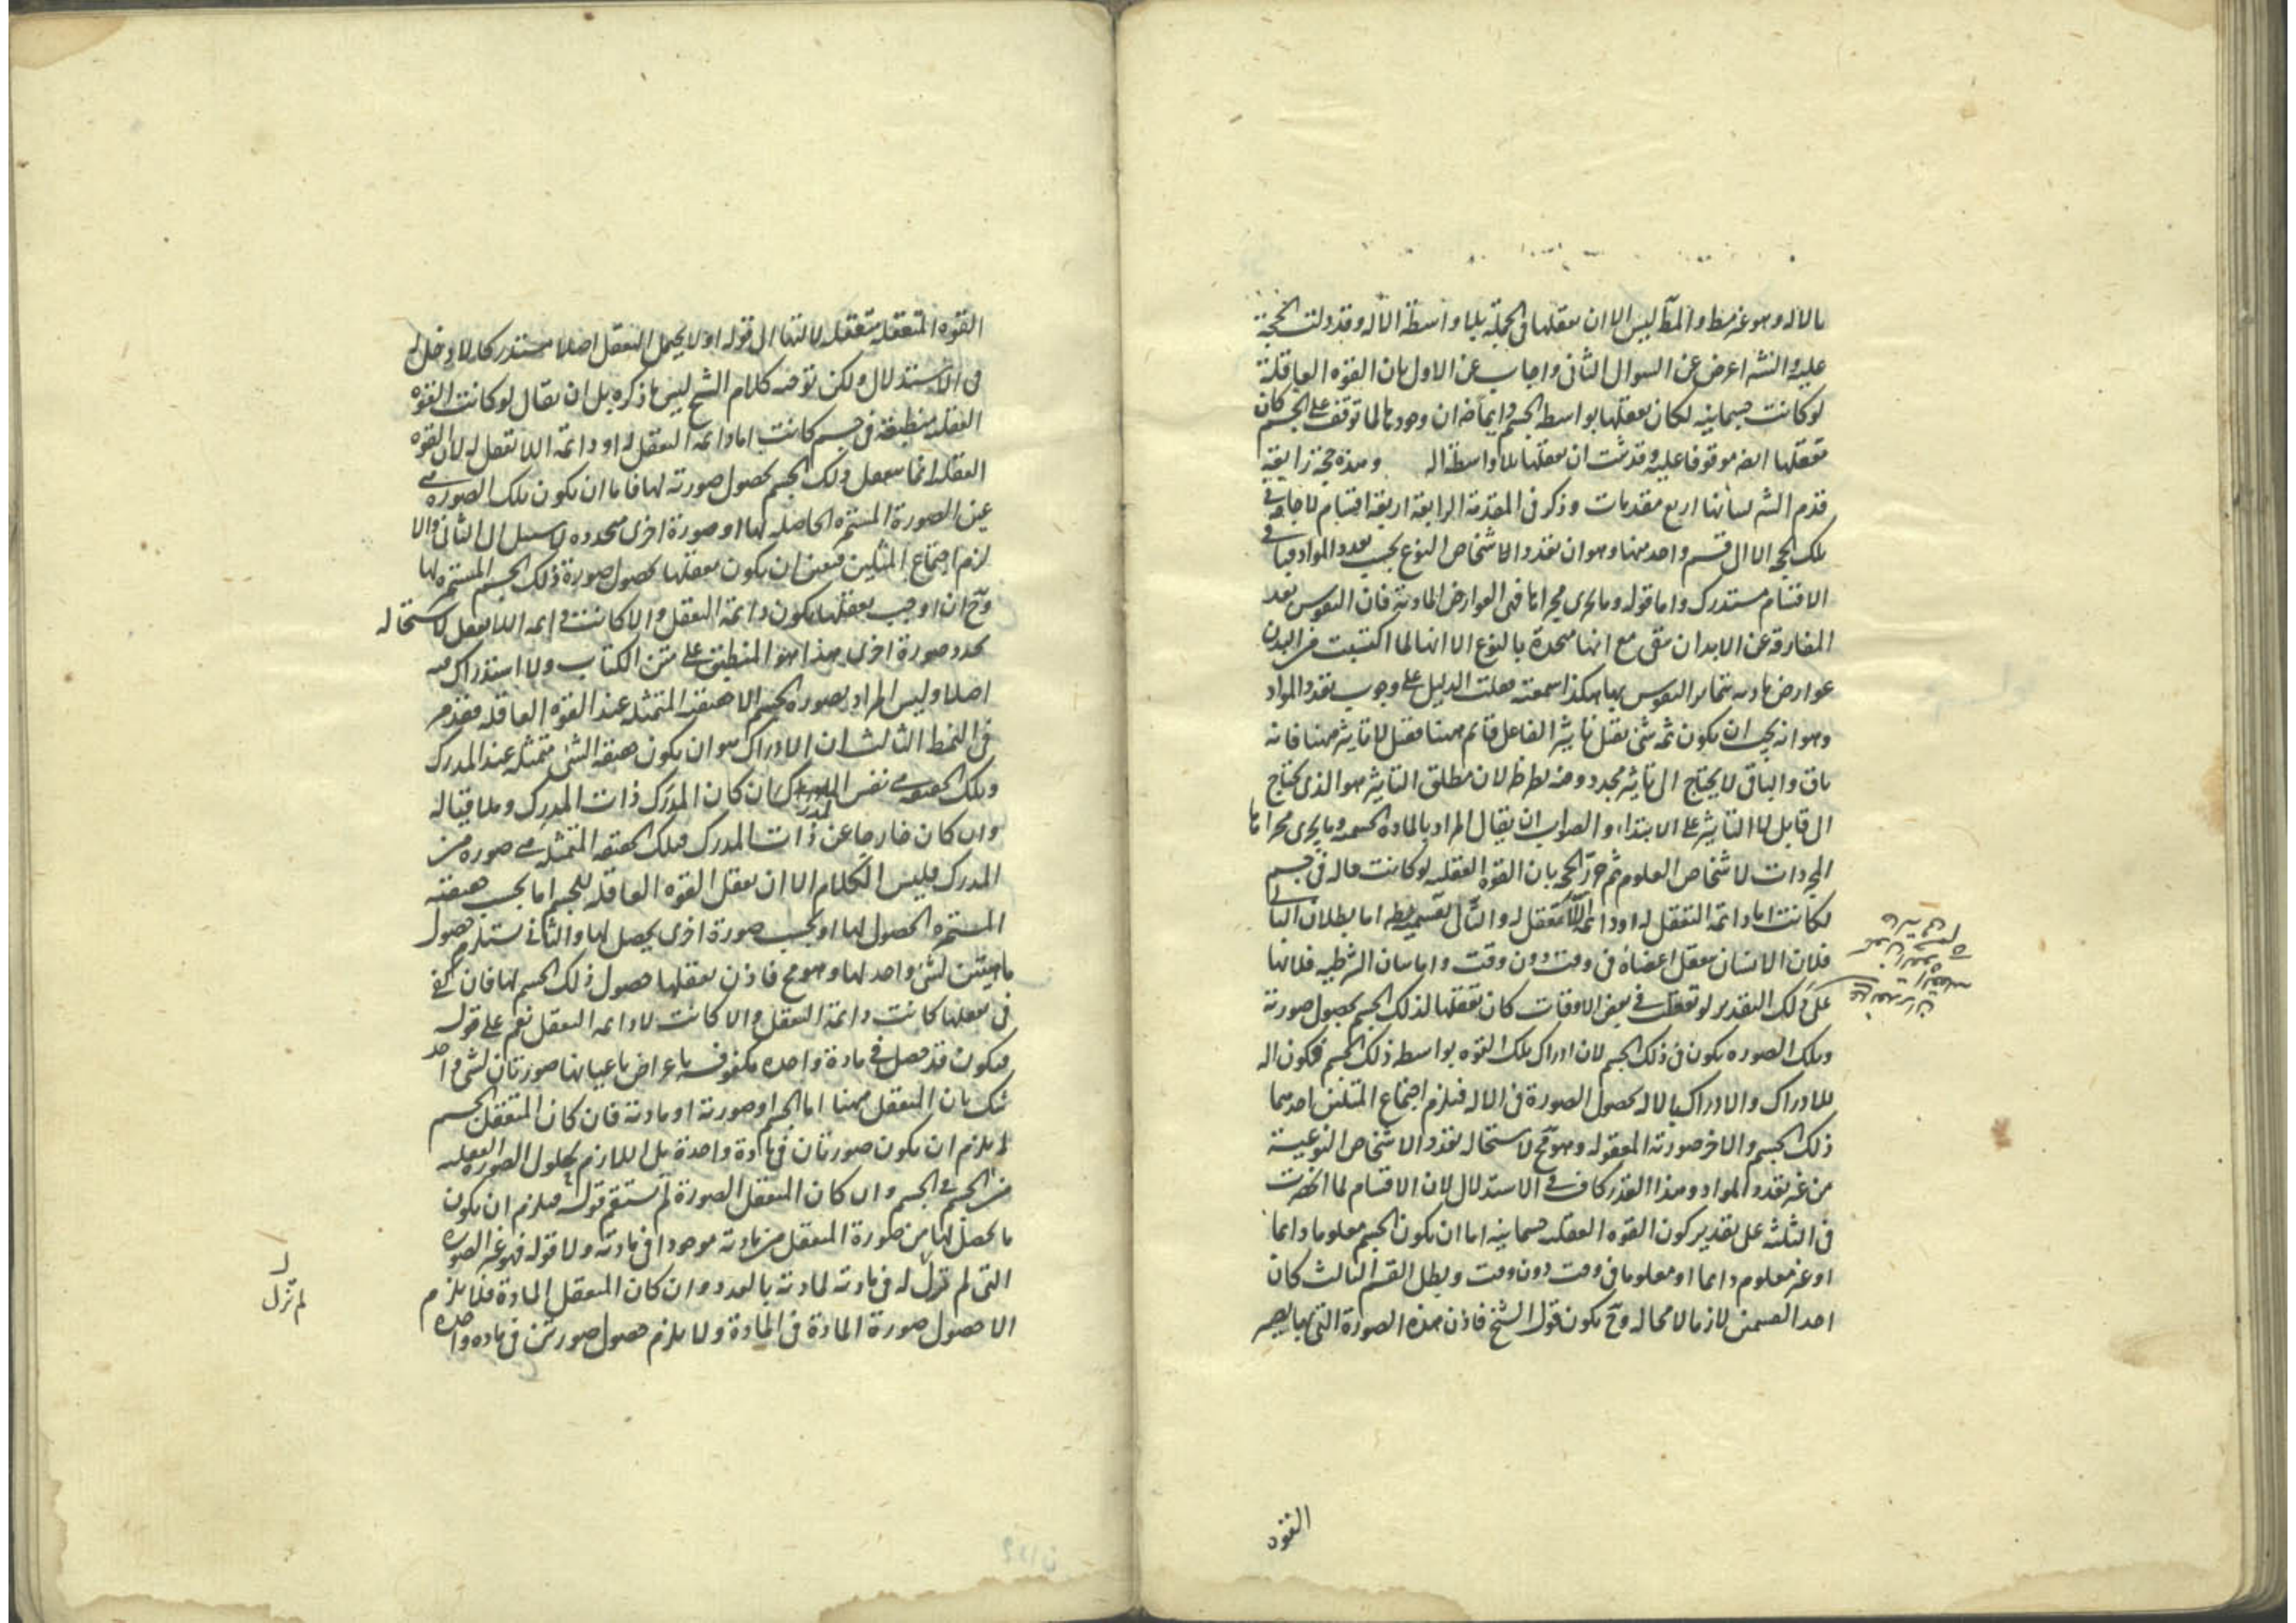 بالاله وهو غير مط والمط ليس الا ان تعقلها في الجملة بلا واسطة الاله وقد دلت الحجة
عليه والشه اعرض عن السوال الثاني واجاب عن الاول بان القوه العاقلة
لو كانت جسمانيه لكان تعقلها بواسطه الجسم دايما ضه ان وجودها لما توقف على الجسم كان
تعقلها ايضه موقوفا عليه وقد ثبت ان تعقلها بلا واسطة اله وهذه حجة رابعة
قدم الشه لبيانها اربع مقدمات وذكر في المقدمة الرابعة اربعة اقسام لا حاجة في
تلك الحجه الا الى قسم واحد منها وهو ان تعدد الاشخاص النوع بحسب تعدد المواد فباقي
الاقسام مستدرك واما قوله وما يجري مجراها فهي العوارض المادية فان النفوس بعد
المفارقة عن الابدان تبقى مع انها متحدة بالنوع الا انها لما اكتسبت من البدن
عوارض ماديه تتمايز النفوس بها هكذا سمعته قلت الدليل على وجوب تعدد المواد
وهو انه يجب ان يكون ثمه شئ يقبل تاثير الفاعل قائم ههنا فقبل لا تاثير ههنا فانه
باق والباقي لا يحتاج الى تاثير مجدد وفيه نظر ظ لان مطلق التاثير هو الذي يحتاج
الى قابل لا التاثير على الابتداء والصواب ان يقال المراد بالمادة الجسميه وما يجري مجراها
المجردات لاشخاص العلوم ثم حرر الحجه بان القوة العقليه لو كانت حاله في جسم
لكانت اما دائمة التعقل له او دائمة اللا تعقل له والتالى بقسميه بط اما بطلان التالي
فلان الانسان يعقل اعضاه في وقت دون وقت واما بيان الشرطيه فلانها
على ذلك التقدير لو تعقلت في بعض الاوقات كان تعقلها لذلك الجسم بحصول صورته
وتلك الصوره يكون في ذلك الجسم لان ادراك تلك القوه بواسطه ذلك الجسم فيكون اله
للادراك والادراك بالاله بحصول الصورة في الاله فيلزم اجتماع المثلين احدهما
ذلك الجسم والاخر صورته المعقوله وهو مح لاستحاله تعدد الاشخاص النوعية
من غير تعدد المواد وهذا القدر كاف في الاستدلال لان الاقسام لما انحصرت
في الثلثه على تقدير كون القوه العقليه جسمانيه اما ان يكون الجسم معلوما دايما
او غير معلوم دايما او معلوما في وقت دون وقت وبطل القسم الثالث كان
احد القسمين لازما لا محاله وح يكون قول الشيخ فاذن هذه الصورة التي بها يصير
القوه
القوه المتعقله متعقله لالتها الى قوله او لا يحتمل التعقل اصلا مستدركا لا دخل له
في الاستدلال ولكن توجيه كلام الشيخ ليس ما ذكره بل ان يقال لو كانت القوه
العقليه منطبعة في جسم كانت اما دائمه التعقل له او دائمة اللا تعقل له لان القوه
العقليه انما تعقل ذلك الجسم بحصول صورته لها فاما ان يكون تلك الصوره هي
عين الصورة المستمره الحاصله لها او صورة اخرى متجدده لا سبيل الى الثاني والا
لزم اجتماع المثلين فتعين ان يكون تعقلها بحصول صورة ذلك الجسم المستمره لها
وح ان اوجب تعقلها يكون دائمة التعقل والا كانت دايمه اللا تعقل لاستحاله
تجدد صورة اخرى هذا هو المنطبق على متن الكتاب ولا استدراك فيه
اصلا وليس المراد بصورة الجسم الا حقيقته المتمثله عند القوه العاقله فقد مر
في النمط الثالث ان الادراك هو ان يكون حقيقه الشئ متمثله عند المدرك
وتلك الحقيقه هي نفس المدرك ان كان المدرك ذات المدرك وملاقيا له
وان كان خارجا عن ذات المدرك فتلك الحقيقه المتمثله هي صوره من
المدرك فليس الكلام الا ان تعقل القوه العاقله للجسم اما بحسب حقيقته
المستمره الحصول لها او بحسب صورة اخرى يحصل لها والثاني يستلزم حصول
ماهيتين لشئ واحد لها وهو مح فاذن تعقلها حصول ذلك الجسم لها فان كفى
في تعقلها كانت دائمة التعقل والا كانت لا دائمه التعقل نعم على قوله
فيكون قد حصل في مادة واحده مكنوفه باعراض باعيانها صورتان لشئ واحد
شك بان المتعقل ههنا اما الجسم او صورته او مادته فان كان المتعقل الجسم
لم يلزم ان يكون صورتان في مادة واحدة بل اللازم حلول الصوره العقليه
من الجسم في الجسم وان كان المتعقل الصورة لم يستقم قوله فيلزم ان يكون
ما يحصل لها من صورة المتعقل من مادته موجودا في مادته ولا قوله فهو غير الصوره
التي لم تزل له في مادته لمادته بالعدد وان كان المتعقل المادة فلا يلزم
الا حصول صورة المادة في المادة ولا يلزم حصول صورتين في ماده واحده
لم تزل